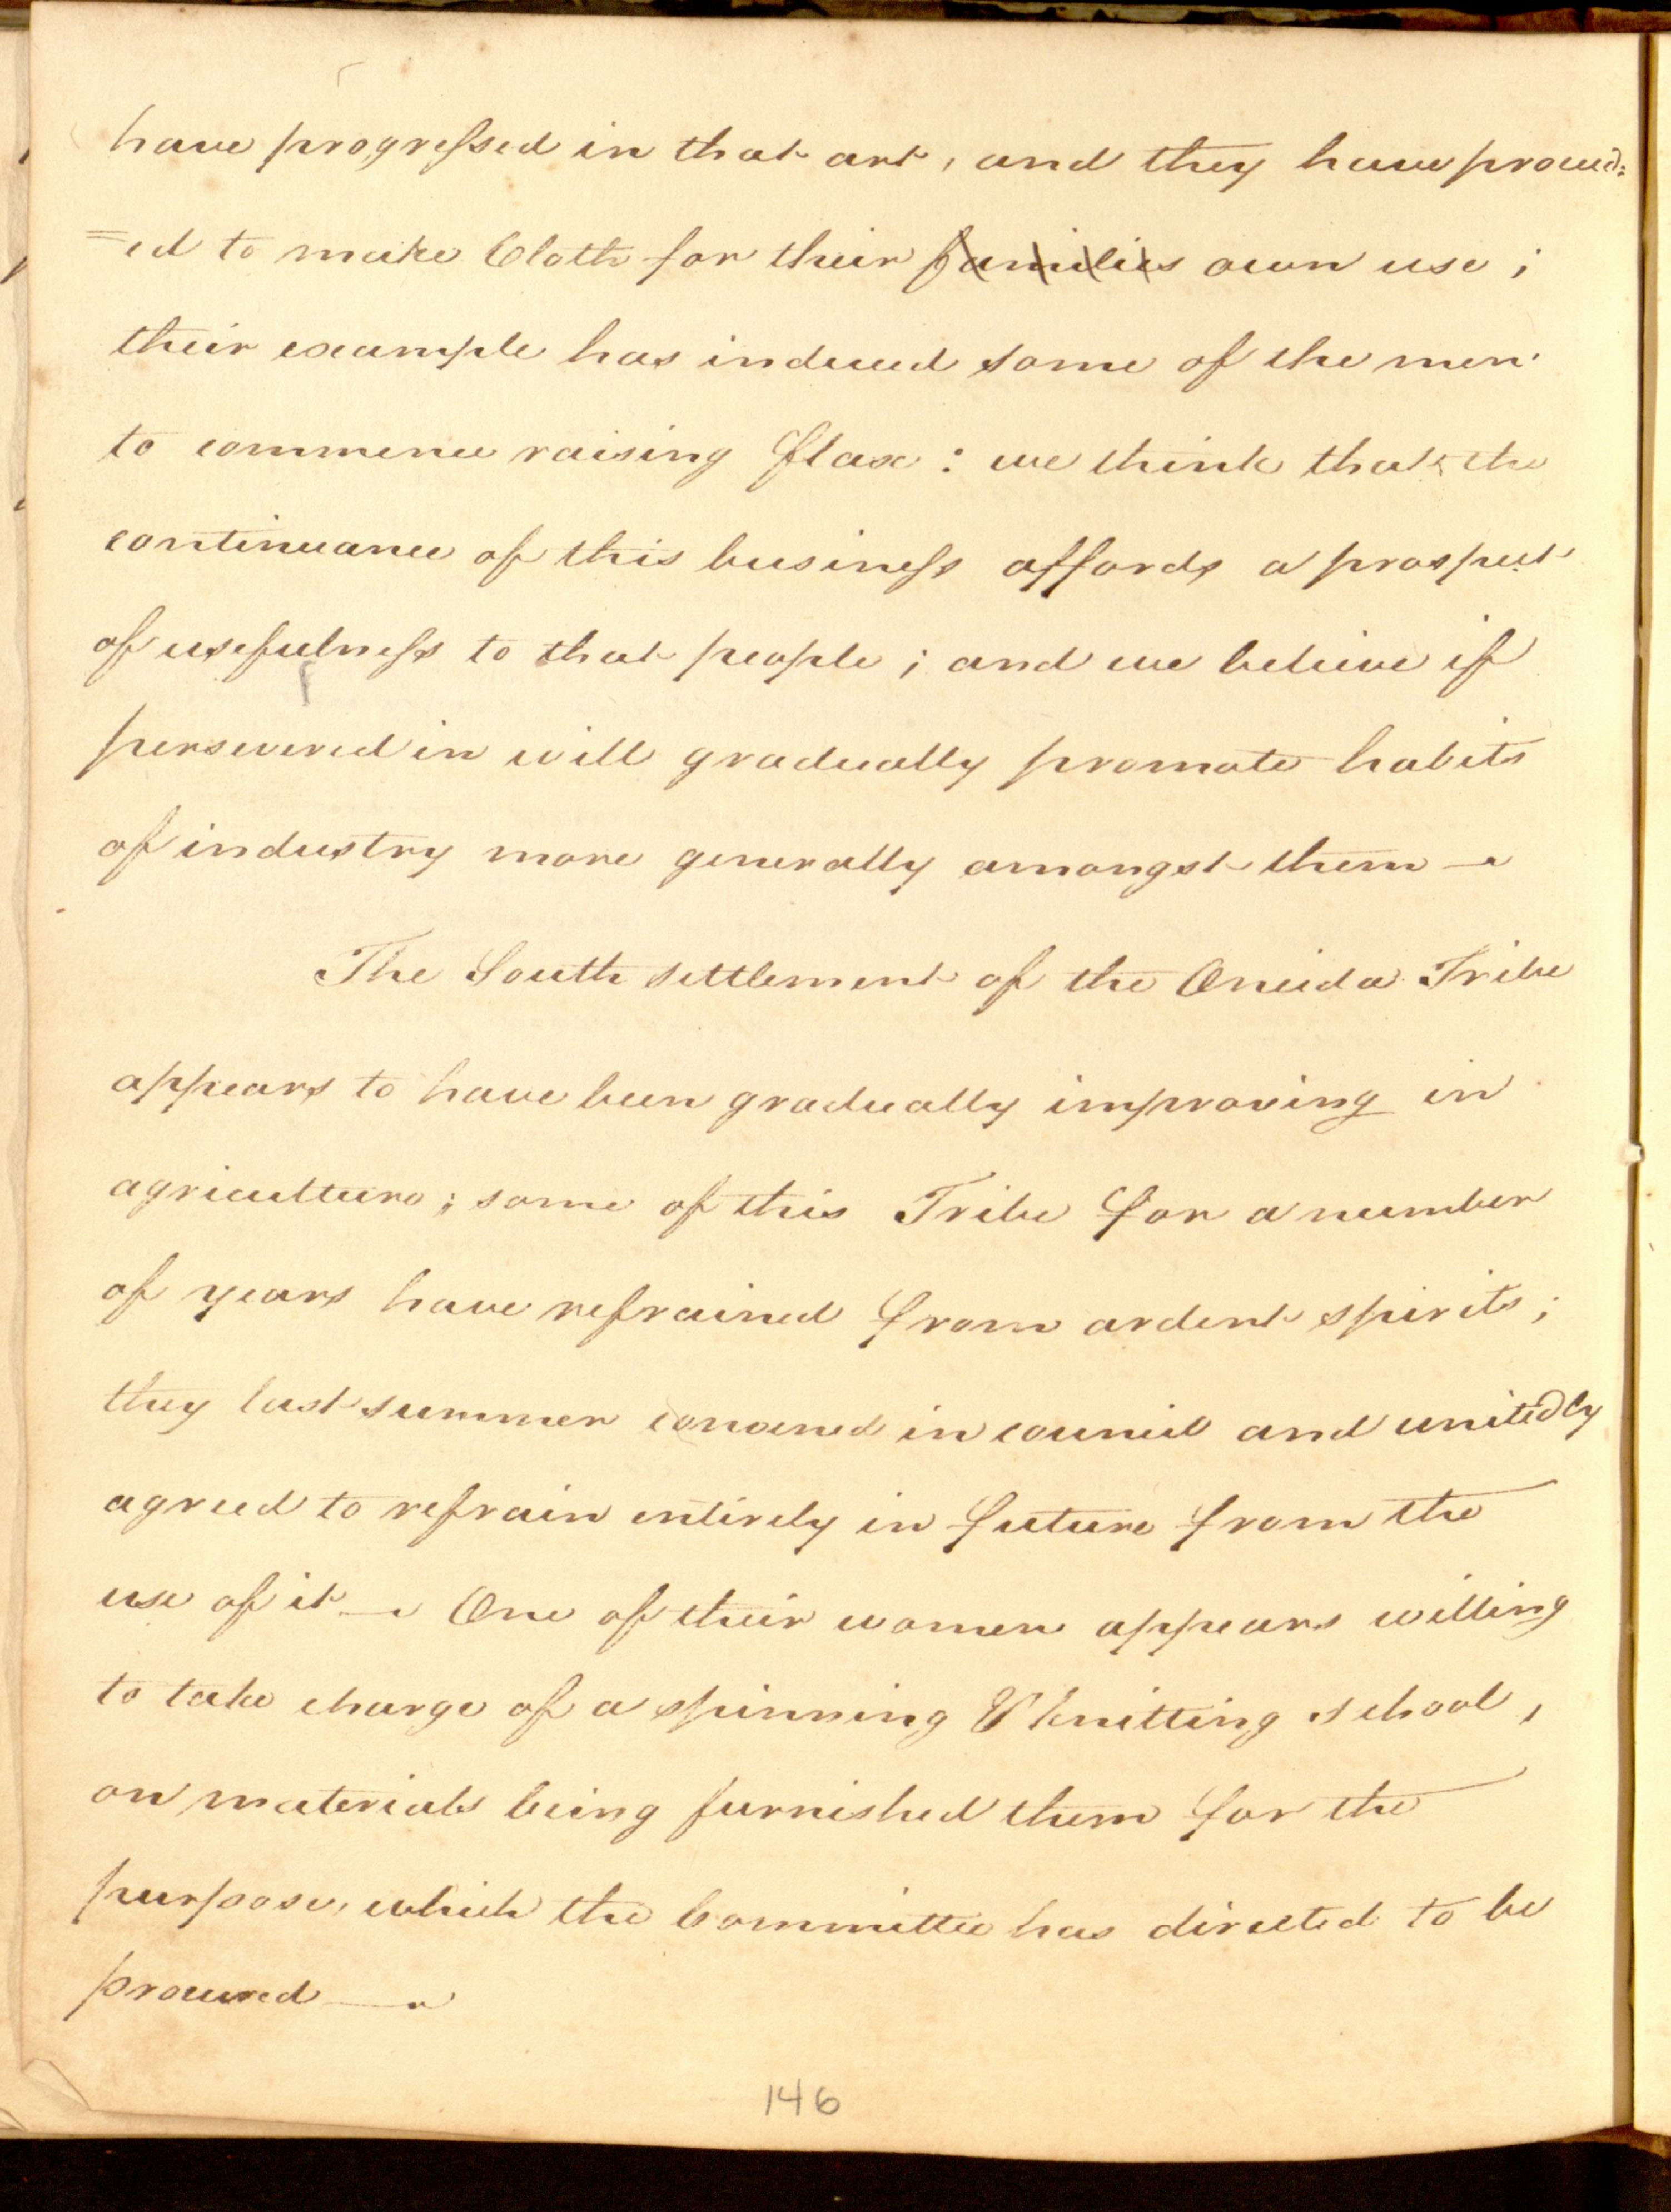 have progressed in that art, and they have proceed=
=ed to make Cloth for their families own use;
their example has induced some of the men
to commence raising flax: we think that the
continuance of this business affords a prospect
of usefulness to that people; and we believe if
persevered in will gradually promote habits
of industry more generally amongst them —
The South settlement of the Oneida Tribe
appears to have been gradually improving in
agriculture; some of this Tribe for a number
of years have refrained from ardent spirits;
they last summer convened in council and unitedly
agreed to refrain entirely in future from the
use of it — One of their women appears willing
to take charge of a spinning & knitting school,
on materials being furnished them for the
purpose, which the Committee has directed to be
procured —
146